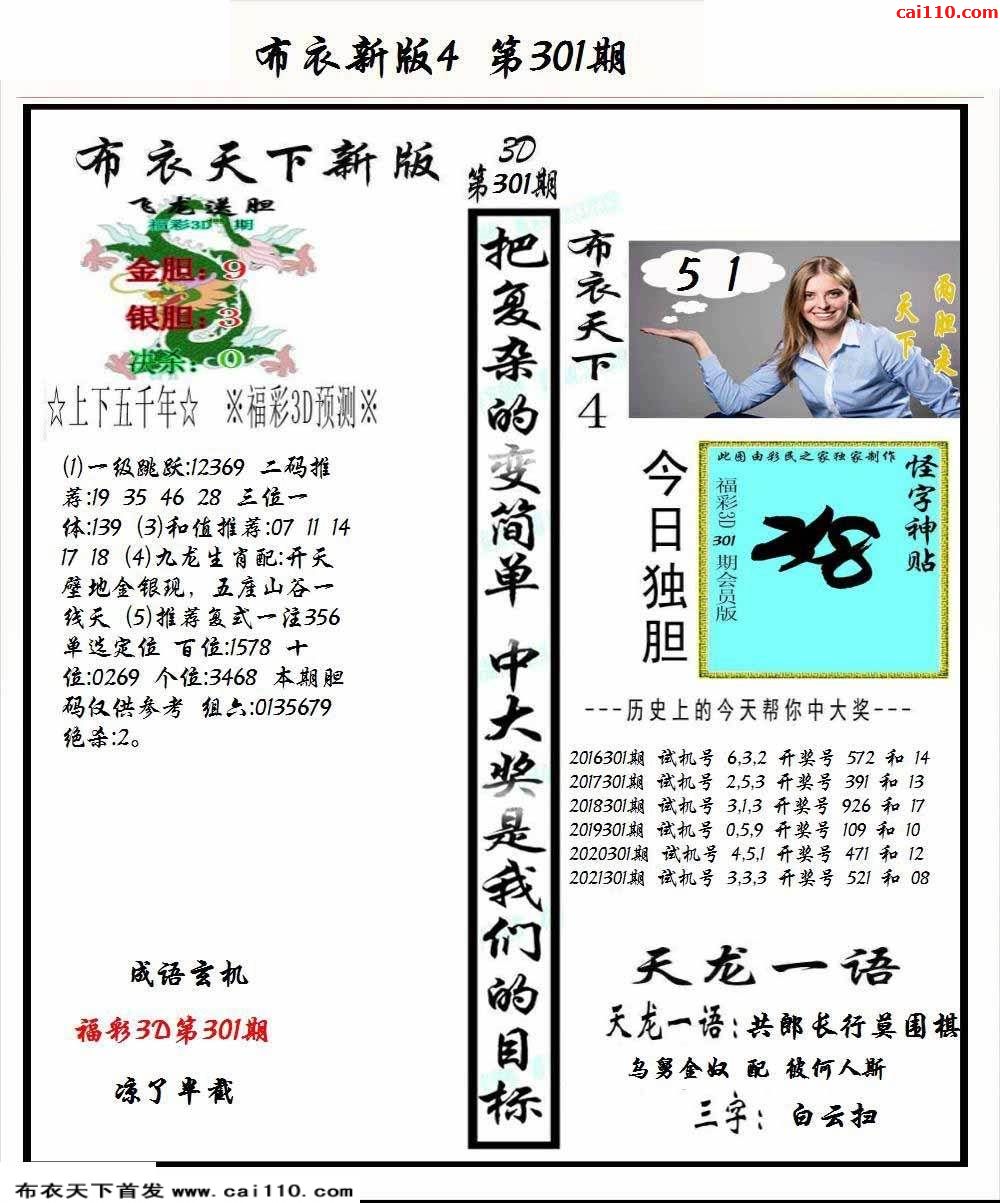 cai110.com
布衣新版4 第301期
布衣天下新版
飞龙送胆
福彩3D 期
金胆：9
银胆：3
决杀：0
☆上下五千年☆ ※福彩3D预测※
(1)一级跳跃:12369 二码推
荐:19 35 46 28 三位一
体:139 (3)和值推荐:07 11 14
17 18 (4)九龙生肖配:开天
壁地金银现，五度山谷一
线天 (5)推荐复式一注356
单选定位 百位:1578 十
位:0269 个位:3468 本期胆
码仅供参考 组六:0135679
绝杀:2。
成语玄机
福彩3D第301期
凉了半截
3D
第301期
把复杂的变简单 中大奖是我们的目标
布衣天下4
5 1
两胆走
天下
今日独胆
此图由彩民之家独家制作
怪字神贴
福彩3D 301 期会员版
---历史上的今天帮你中大奖---
2016301期 试机号 6,3,2 开奖号 572 和 14
2017301期 试机号 2,5,3 开奖号 391 和 13
2018301期 试机号 3,1,3 开奖号 926 和 17
2019301期 试机号 0,5,9 开奖号 109 和 10
2020301期 试机号 4,5,1 开奖号 471 和 12
2021301期 试机号 3,3,3 开奖号 521 和 08
天龙一语
天龙一语：共郎长行莫围棋
乌舅金奴 配 彼何人斯
三字： 白云扫
布衣天下首发 www.cai110.com